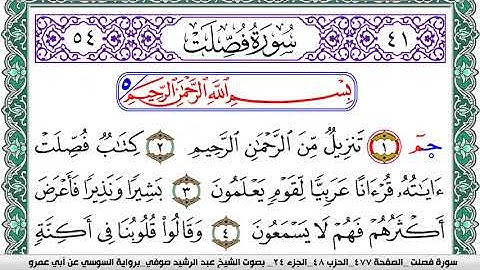 ٥٤ سُورَةُ فُصِّلَتْ ٤١
بِسْمِ اللَّهِ الرَّحْمَٰنِ الرَّحِيمِ
حمٓ ١ تَنزِيلٌ مِّنَ ٱلرَّحْمَٰنِ ٱلرَّحِيمِ ٢ كِتَٰبٌ فُصِّلَتْ
ءَايَٰتُهُۥ قُرْءَانًا عَرَبِيًّا لِّقَوْمٍ يَعْلَمُونَ ٣ بَشِيرًا وَنَذِيرًا فَأَعْرَضَ
أَكْثَرُهُمْ فَهُمْ لَا يَسْمَعُونَ ٤ وَقَالُوا۟ قُلُوبُنَا فِىٓ أَكِنَّةٍ
سورة فصلت _الصفحة ٤٧٧_الحزب ٤٨_الجزء ٢٤_ بصوت الشيخ عبد الرشيد صوفي_برواية السوسي عن أبي عمرو